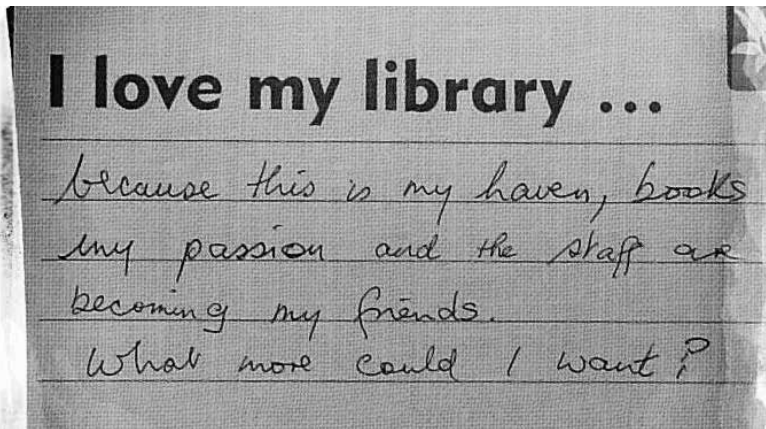 I love my library ...
because this is my haven, books
my passion and the staff are
becoming my friends.
What more could I want?